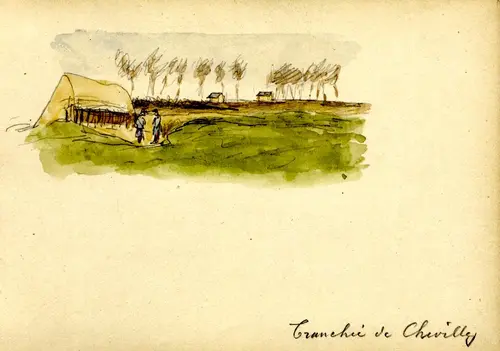 Tranchée de Chevilly